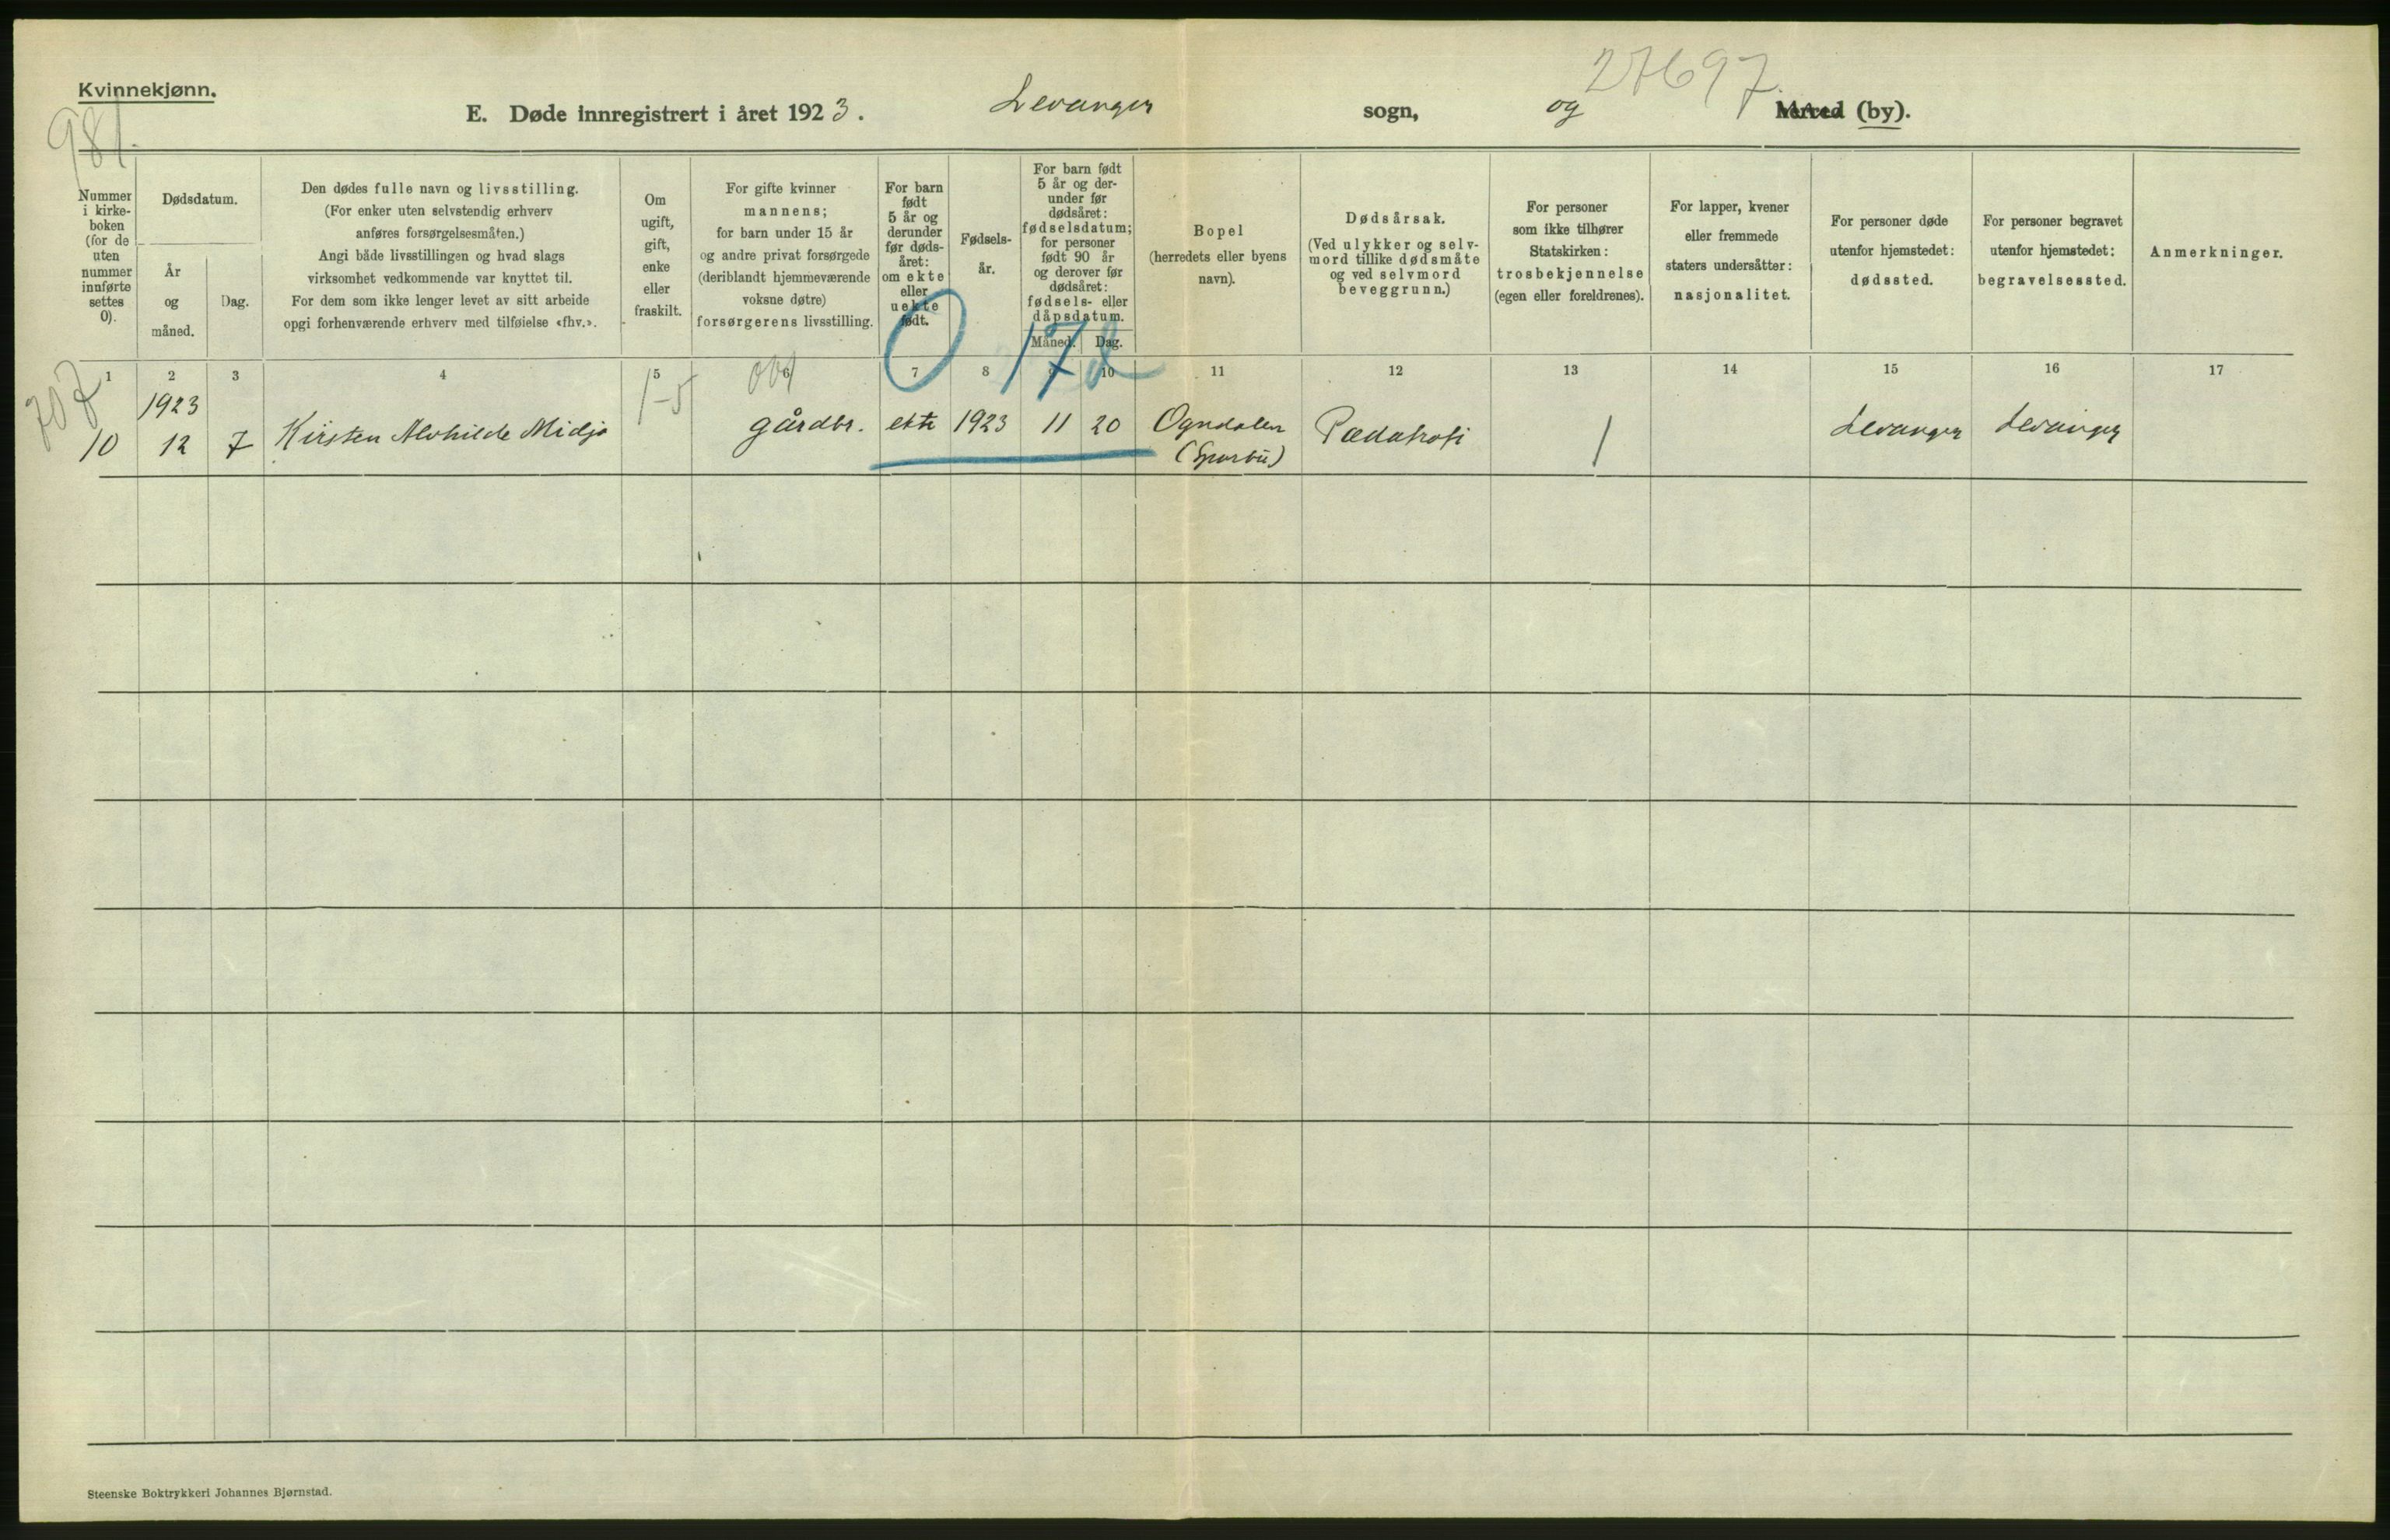 Kvinnekjønn.
27697.
981.
E. Døde innregistrert i året 1923. Levanger sogn, og herred (by).
Nummer
i kirke-
boken
(for de
uten
nummer
innførte
settes
0).
Dødsdatum.
År
og
måned.
Dag.
Den dødes fulle navn og livsstilling.
(For enker uten selvstendig erhverv
anføres forsørgelsesmåten.)
Angi både livsstillingen og hvad slags
virksomhet vedkommende var knyttet til.
For dem som ikke lenger levet av sitt arbeide
opgi forhenværende erhverv med tilføielse «fhv.».
Om
ugift,
gift,
enke
eller
fraskilt.
For gifte kvinner
mannens;
for barn under 15 år
og andre privat forsørgede
(deriblandt hjemmeværende
voksne døtre)
forsørgerens livsstilling.
For barn
født
5 år og
derunder
før døds-
året:
om ekte
eller
uekte
født.
Fødsels-
år.
For barn født
5 år og der-
under før
dødsåret:
fødselsdatum;
for personer
født 90 år
og derover før
dødsåret:
fødsels- eller
dåpsdatum.
Måned. Dag.
Bopel
(herredets eller byens
navn).
Dødsårsak.
(Ved ulykker og selv-
mord tillike dødsmåte
og ved selvmord
beveggrunn.)
For personer
som ikke tilhører
Statskirken:
trosbekjennelse
(egen eller foreldrenes).
For lapper, kvener
eller fremmede
staters undersåtter:
nasjonalitet.
For personer døde
utenfor hjemstedet:
dødssted.
For personer begravet
utenfor hjemstedet:
begravelsessted.
Anmerkninger.
0 17 d
1 2 3 4 5 6 7 8 9 10 11 12 13 14 15 16 17
707 1-5 001
1923
10 12 7 Kirsten Alvhilde Midjo gårdbr. ekte 1923 11 20 Ogndalen Pædatrofi / Levanger Levanger
(Sparbu)
Steenske Boktrykkeri Johannes Bjørnstad.